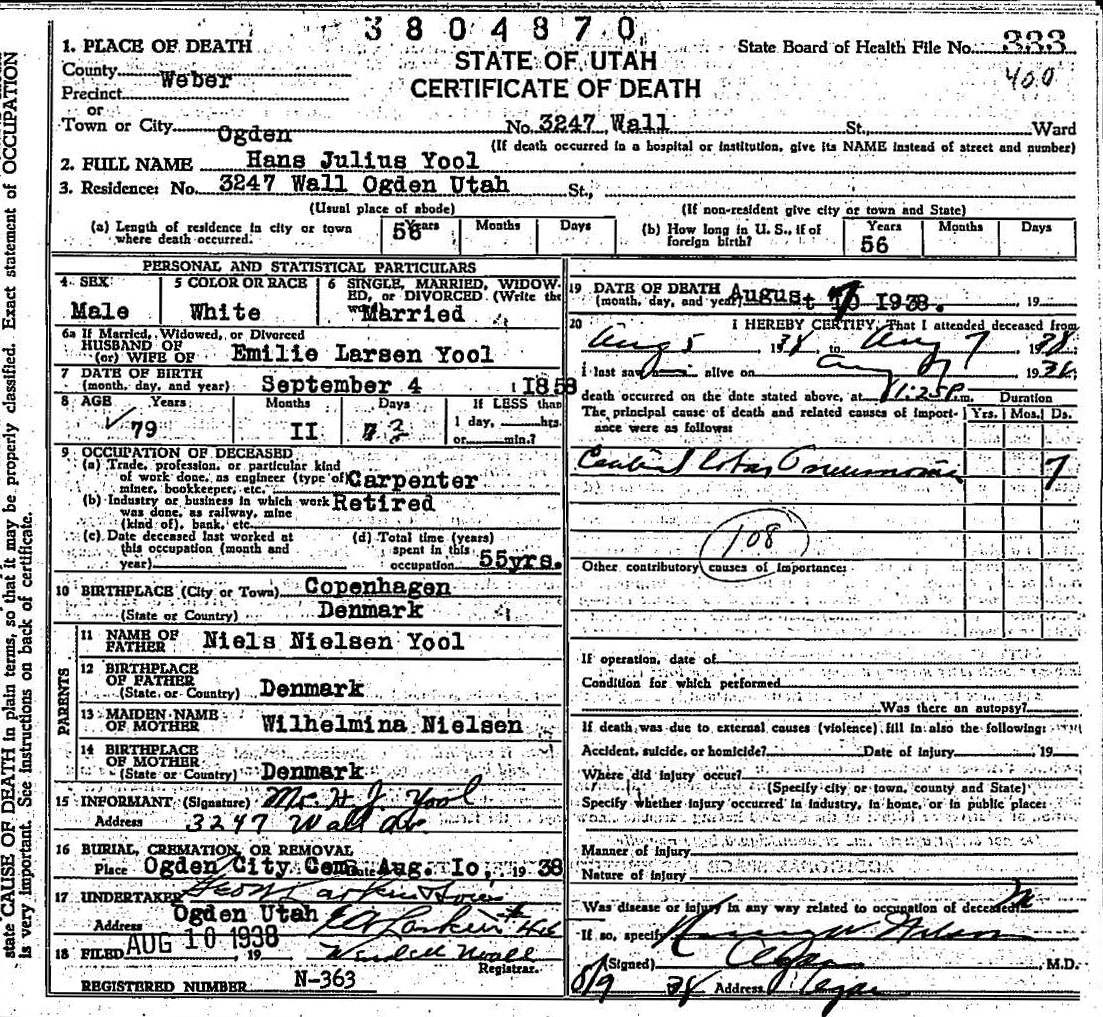 3804870
1. PLACE OF DEATH
STATE OF UTAH
CERTIFICATE OF DEATH
State Board of Health File No. 333
400
County Weber
Precinct
or
Town or City Ogden No. 3247 Wall St., Ward
(If death occurred in a hospital or institution, give its NAME instead of street and number)
2. FULL NAME Hans Julius Yool
3. Residence: No. 3247 Wall Ogden Utah St.,
(Usual place of abode) (If non-resident give city or town and State)
(a) Length of residence in city or town where death occurred. 56 Years Months Days
(b) How long in U. S., if of foreign birth? Years 56 Months Days
PERSONAL AND STATISTICAL PARTICULARS
4 SEX Male
5 COLOR OR RACE White
6 SINGLE, MARRIED, WIDOWED, or DIVORCED (Write the word) Married
6a If Married, Widowed, or Divorced
HUSBAND OF
(or) WIFE OF Emilie Larsen Yool
7 DATE OF BIRTH
(month, day, and year) September 4 1858
8 AGE Years 79 Months II Days 3
If LESS than
1 day, hrs.
or min.?
9 OCCUPATION OF DECEASED
(a) Trade, profession, or particular kind
of work done, as engineer (type of)
miner, bookkeeper, etc. Carpenter
(b) Industry or business in which work
was done, as railway, mine
(kind of), bank, etc. Retired
(c) Date deceased last worked at
this occupation (month and
year)
(d) Total time (years)
spent in this
occupation 55yrs.
10 BIRTHPLACE (City or Town) Copenhagen
(State or Country) Denmark
PARENTS
11 NAME OF
FATHER Niels Nielsen Yool
12 BIRTHPLACE
OF FATHER
(State or Country) Denmark
13 MAIDEN NAME
OF MOTHER Wilhelmina Nielsen
14 BIRTHPLACE
OF MOTHER
(State or Country) Denmark
15 INFORMANT (Signature) Mr. H. J. Yool
Address 3247 Wall Av
16 BURIAL, CREMATION, OR REMOVAL
Place Ogden City Cem Date Aug. Io, 19 38
17 UNDERTAKER Larkin & Sons
Address Ogden Utah
18 FILED AUG 10 1938, 19
Registrar.
REGISTERED NUMBER N-363
19 DATE OF DEATH
(month, day, and year) August 7 I938. , 19
20 I HEREBY CERTIFY, That I attended deceased from
Aug 5 1938 to Aug 7 1938
I last saw alive on Aug 7 1938
death occurred on the date stated above, at 11:25P.m. Duration
The principal cause of death and related causes of importance were as follows: Yrs. Mos. Ds.
Central lobar Pneumonia 7
108
Other contributory causes of importance:
If operation, date of
Condition for which performed
Was there an autopsy?
If death was due to external causes (violence) fill in also the following:
Accident, suicide, or homicide? Date of injury 19
Where did injury occur?
(Specify city or town, county and State)
Specify whether injury occurred in industry, in home, or in public place:
Manner of Injury
Nature of injury
Was disease or injury in any way related to occupation of deceased? No
If so, specify
(Signed) M.D.
8/9 38 Address Ogden
state CAUSE OF DEATH in plain terms, so that it may be properly classified. Exact statement of OCCUPATION
is very important. See instructions on back of certificate.